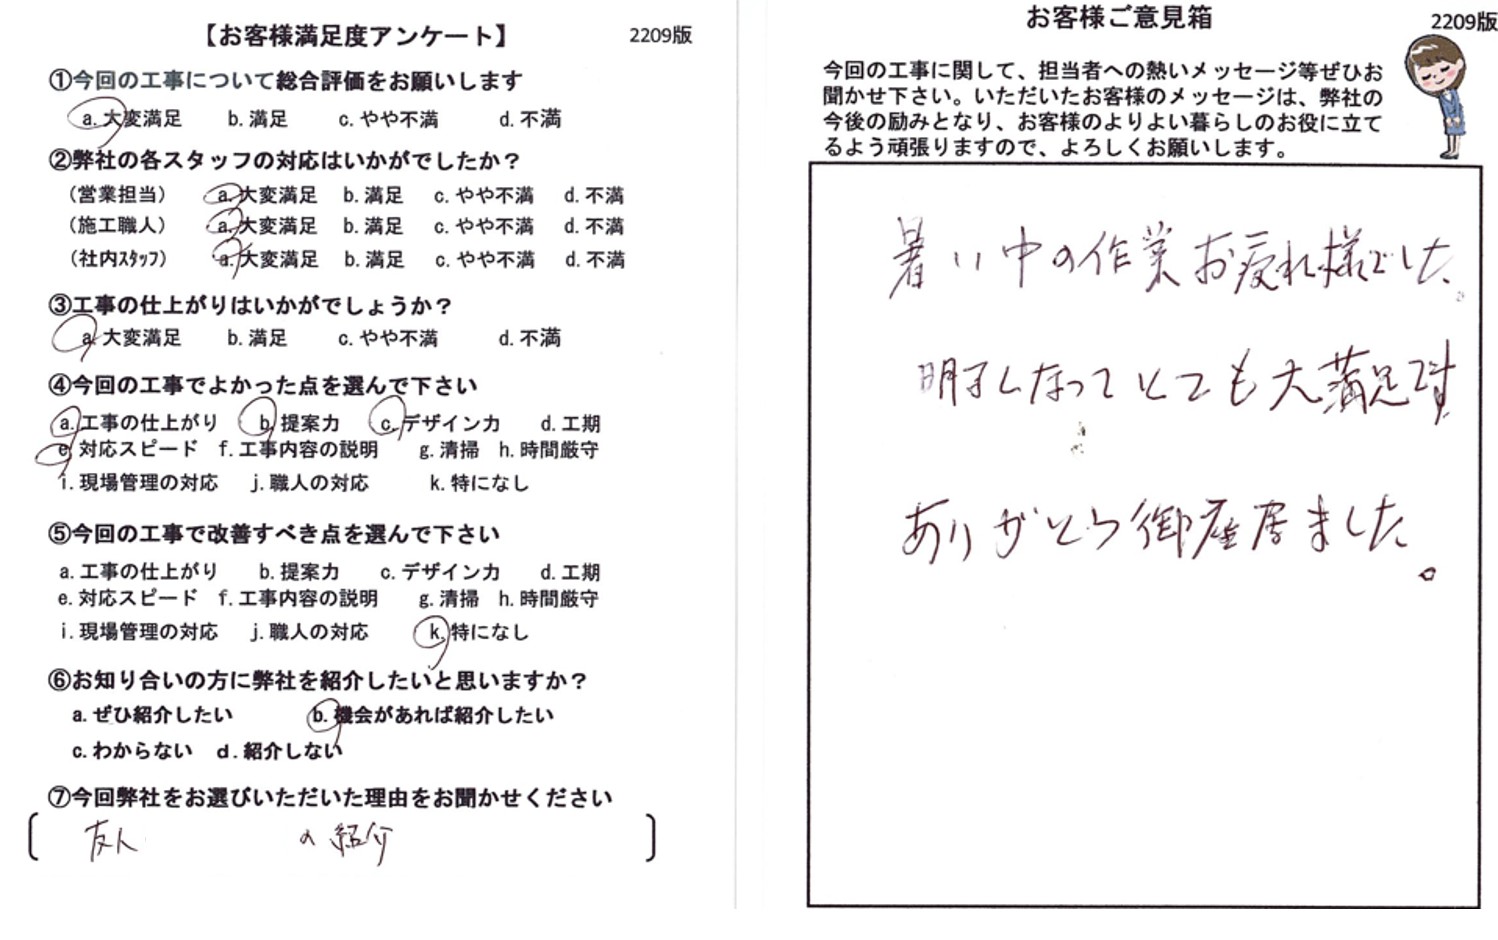 【お客様満足度アンケート】 2209版
①今回の工事について総合評価をお願いします
a.大変満足 b.満足 c.やや不満 d.不満
②弊社の各スタッフの対応はいかがでしたか？
(営業担当) a.大変満足 b.満足 c.やや不満 d.不満
(施工職人) a.大変満足 b.満足 c.やや不満 d.不満
(社内ｽﾀｯﾌ) a.大変満足 b.満足 c.やや不満 d.不満
③工事の仕上がりはいかがでしょうか？
a.大変満足 b.満足 c.やや不満 d.不満
④今回の工事でよかった点を選んで下さい
a.工事の仕上がり b.提案力 c.デザイン力 d.工期
e.対応スピード f.工事内容の説明 g.清掃 h.時間厳守
i.現場管理の対応 j.職人の対応 k.特になし
⑤今回の工事で改善すべき点を選んで下さい
a.工事の仕上がり b.提案力 c.デザイン力 d.工期
e.対応スピード f.工事内容の説明 g.清掃 h.時間厳守
i.現場管理の対応 j.職人の対応 k.特になし
⑥お知り合いの方に弊社を紹介したいと思いますか？
a.ぜひ紹介したい b.機会があれば紹介したい
c.わからない d.紹介しない
⑦今回弊社をお選びいただいた理由をお聞かせください
友人 の紹介
お客様ご意見箱 2209版
今回の工事に関して、担当者への熱いメッセージ等ぜひお
聞かせ下さい。いただいたお客様のメッセージは、弊社の
今後の励みとなり、お客様のよりよい暮らしのお役に立て
るよう頑張りますので、よろしくお願いします。
暑い中の作業お疲れ様でした。
明るくなってとても大満足です
ありがとう御座居ました。